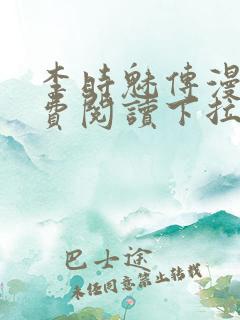 李時魅傅漫
費閱讀下拉
巴士途
未经同意禁止转载